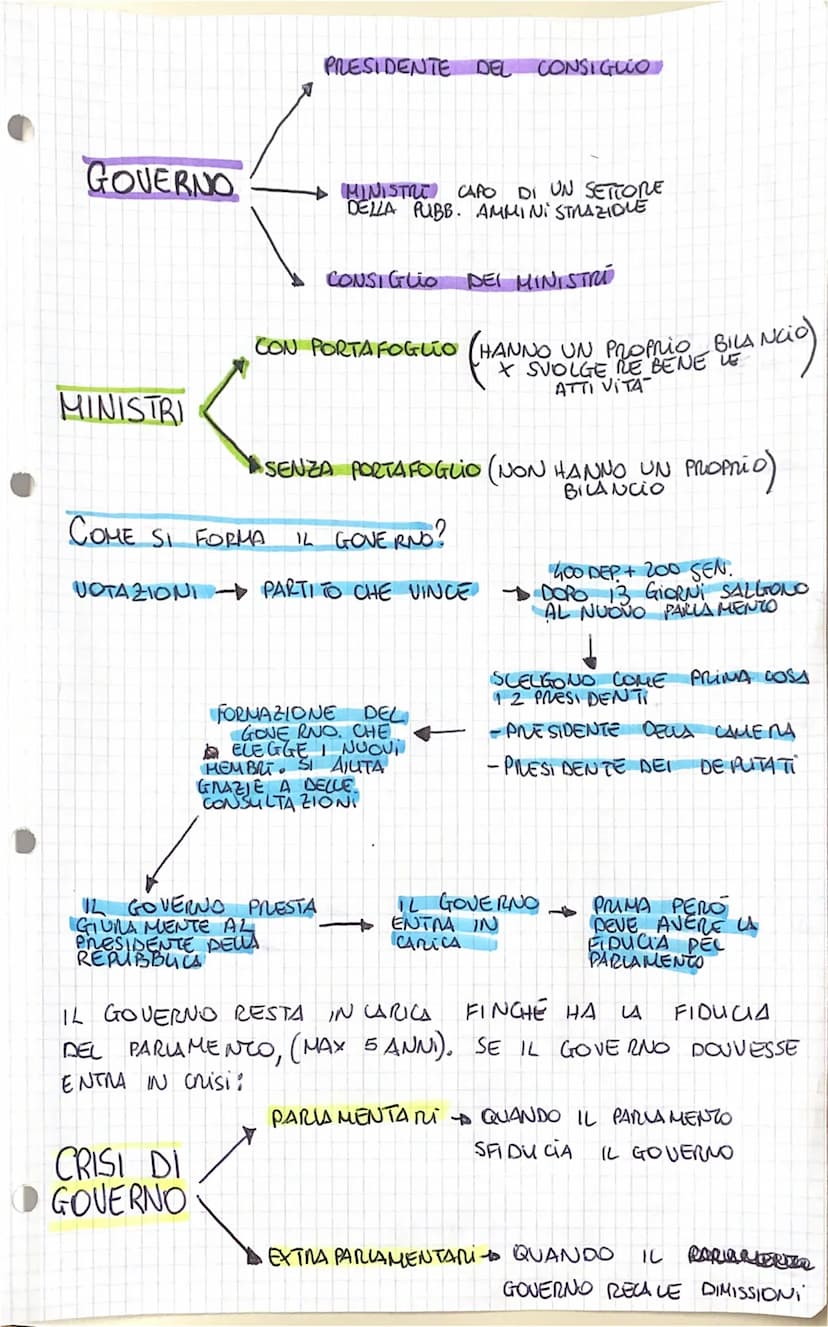 PRESIDENTE DEL CONSIGLIO
GOVERNO
MINISTRI CAPO DI UN SETTORE
DELLA PUBB. AMMINISTRAZIONE
CONSIGLIO DEI MINISTRI
CON PORTAFOGLIO (HANNO UN PROPRIO BILANCIO)
X SVOLGERE BENE LE
ATTIVITA'
MINISTRI
SENZA PORTAFOGLIO (NON HANNO UN PROPRIO)
BILANCIO
COME SI FORMA IL GOVERNO?
VOTAZIONI → PARTITO CHE VINCE →
400 DEP. + 200 SEN.
DOPO 13 GIORNI SALGONO
AL NUOVO PARLAMENTO
SCELGONO COME PRIMA COSA
I 2 PRESIDENTI
- PRESIDENTE DELLA CAMERA
- PRESIDENTE DEI DEPUTATI
FORMAZIONE DEL
GOVERNO. CHE
ELEGGE I NUOVI
MEMBRI. SI AIUTA
GRAZIE A DELLE
CONSULTAZIONI
IL GOVERNO PRESTA
GIURAMENTE AL
PRESIDENTE DELLA
REPUBBLICA
→ IL GOVERNO
ENTRA IN
CARICA
→ PRIMA PERÒ
DEVE AVERE LA
FIDUCIA DEL
PARLAMENTO
IL GOVERNO RESTA IN CARICA FINCHÉ HA LA FIDUCIA
DEL PARLAMENTO, (MAX 5 ANNI). SE IL GOVERNO DOVVESSE
ENTRA IN CRISI:
PARLAMENTARI → QUANDO IL PARLAMENTO
SFIDUCIA IL GOVERNO
CRISI DI
GOVERNO
EXTRAPARLAMENTARI → QUANDO IL
GOVERNO RECA LE DIMISSIONI